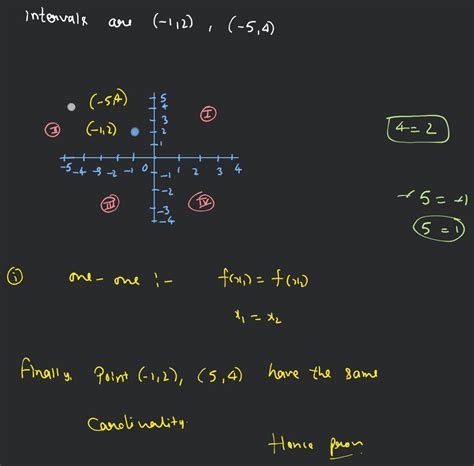 Intervals are (-1,2), (-5,4)
5
(-5,4)
4
3
I
II
(-1,2)
2
4=2
1
-5 -4 -3 -2 -1 0 1 2 3 4
-1
-2
-5 = -1
III
IV
-3
5 = 1
-4
(i) one-one :- f(x1) = f(x2)
x1 = x2
Finally, Point (-1,2), (5,4) have the same
Cardinality.
Hence